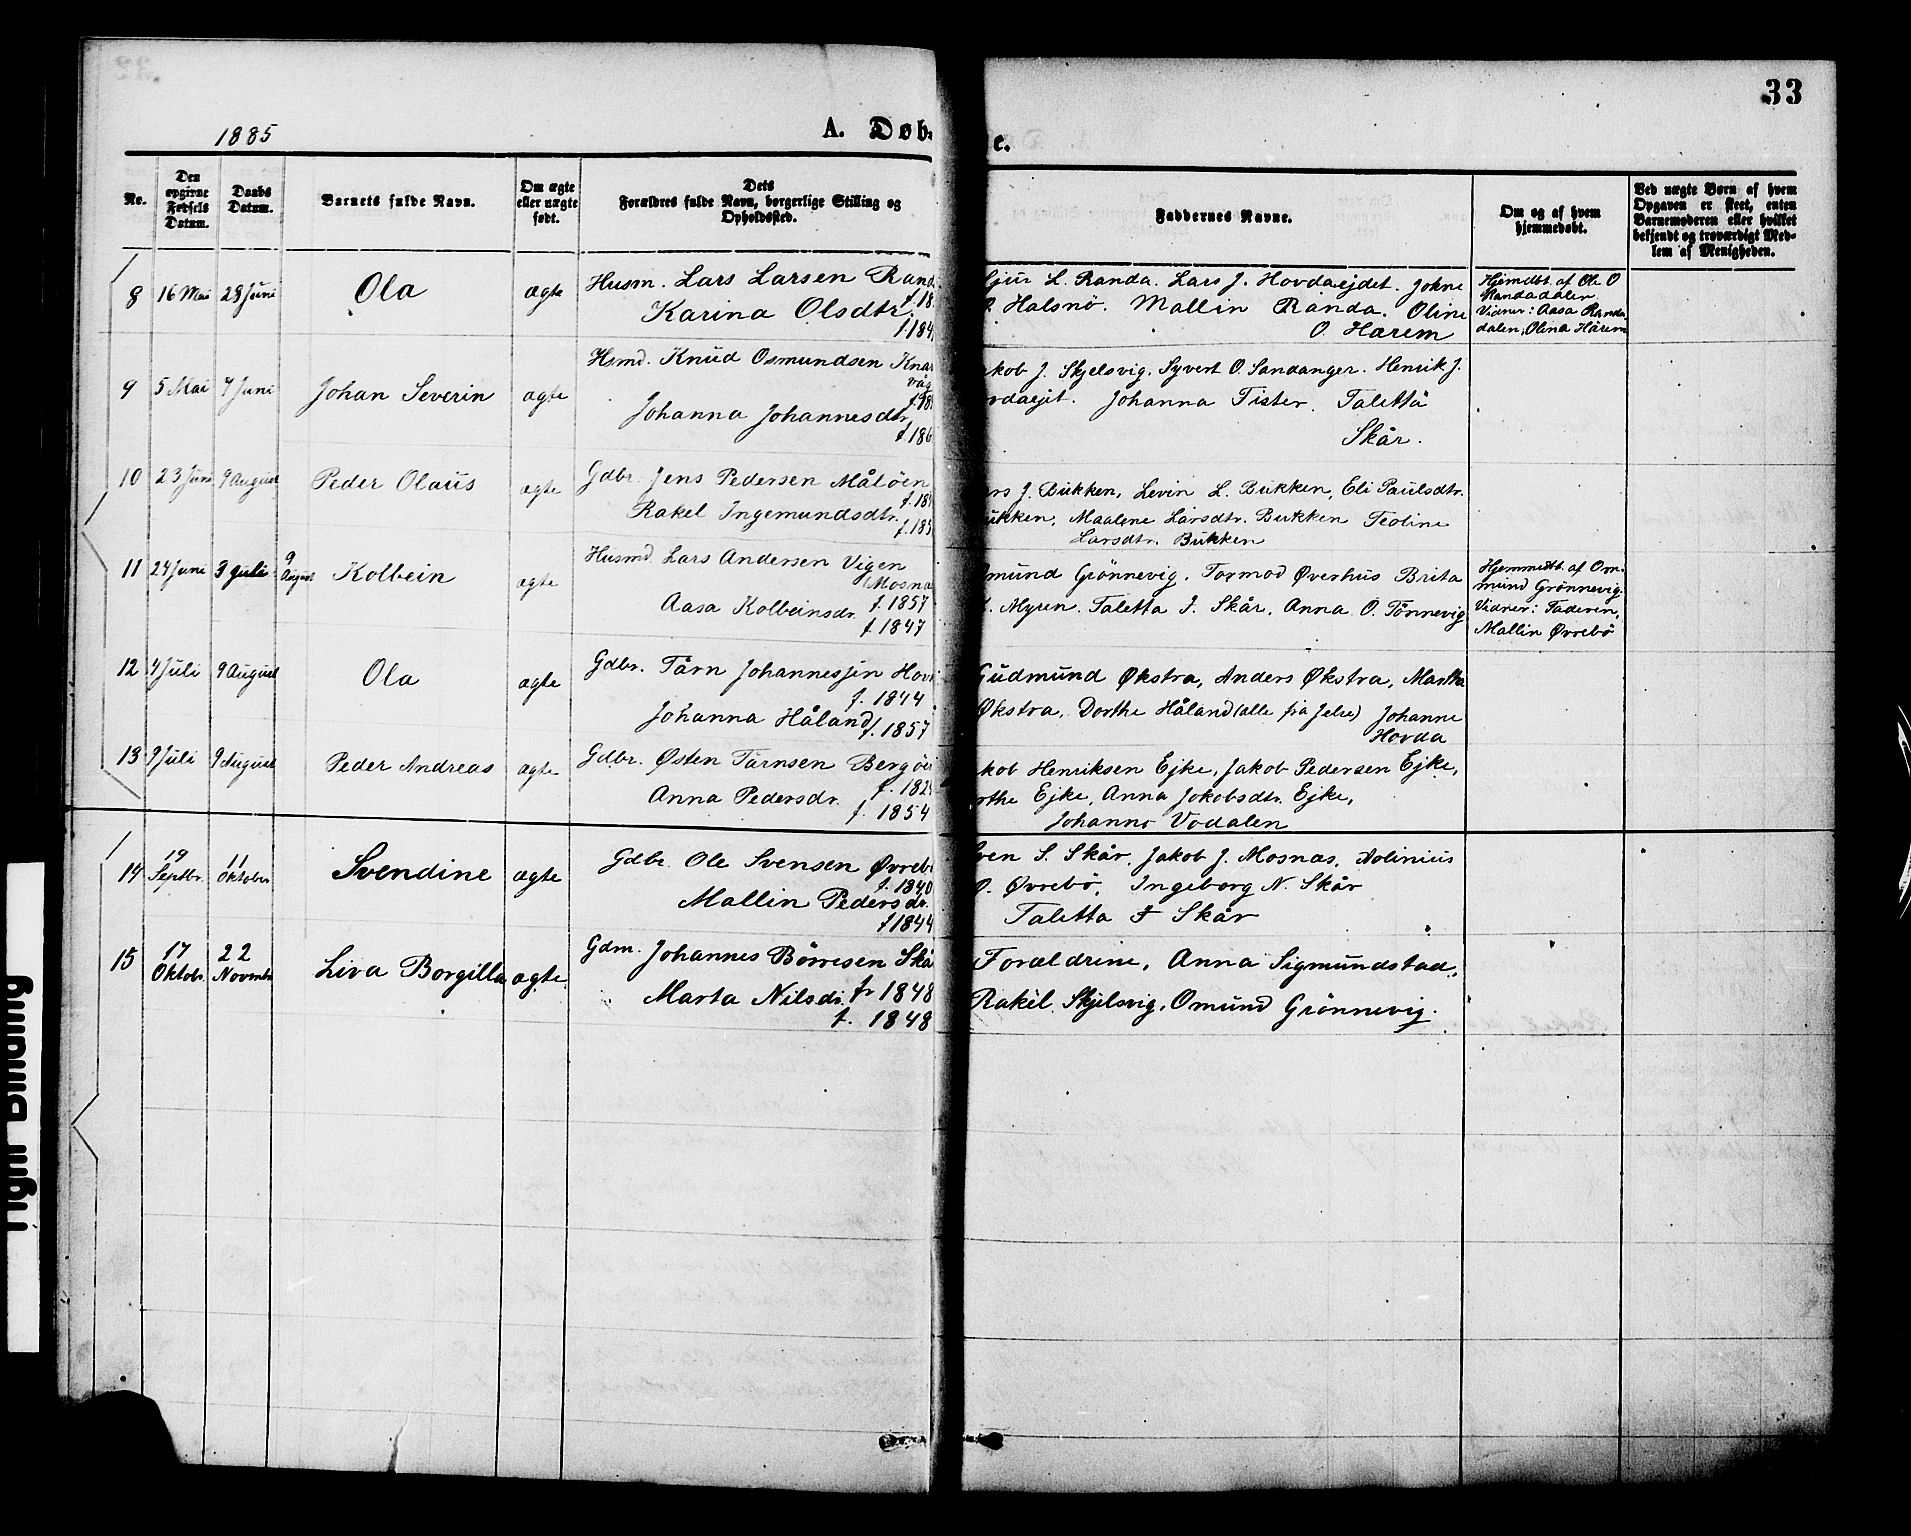 33
1885
A. Døb-
e.
No.
Den opgivne Fødsels Datum.
Daabs Datum.
Barnets fulde Navn.
Om ægte eller uægte født.
Dets Forældres fulde Navn, borgerlige Stilling og Opholdssted.
Faddernes Navne.
Om og af hvem hjemmedøbt.
Ved uægte Børn af hvem Opgaven er skeet, enten Barnemoderen eller hvilket bekjendt og troværdigt Medlem af Menigheden.
8 16 Mai 28 Juni Ola ægte Husm. Lars Larsen Rand
f. 18
Karina Olsdtr.
f 184
L. Randa. Lars J. Hovdaejdet. Johne
O. Halsnö. Mallin Randa. Oline
O. Harem
Hjemdbt. af Ole O
Randadalen
Vidner: Aasa Randa
dalen, Olina Härem
9 5 Mai 7 Juni Johan Severin ægte Hsmd. Knud Osmundsen Knar
våg
f. 18
Johanna Johannesdtr.
f. 186
akob J. Skjelsvig. Syvert O. Sandanger. Henrik J.
vdaejet. Johanna Tister. Taletta
Skår.
10 23 Juni 9 August Peder Olaus ægte Gdbr. Jens Pedersen Målöen
f. 18
Rakel Ingemundsdtr.
f. 185
ars J. Bukken, Levin L. Bukken, Eli Paulsdtr.
ukken, Maalene Larsdtr. Bukken Teoline
Larsdtr. Bukken
11 24 Juni 3 Juli 9 August Kolbein ægte Husmd Lars Andersen Vigen
Mosna
f. 1857
Aasa Kolbeinsdr.
f. 1847
mund Grönnevig. Tormod Øverhus Brita
Myren. Taletta J. Skår. Anna O. Tönnevig
Hjemmedtb. af Om-
mund Grönnevig.
Vidner: Faderen,
Mallin Øvrebö
12 4 Juli 9 August Ola ægte Gdbr. Tårn Johannessen Hov
f. 1844
Johanna Håland
f. 1857
Gudmund Økstra, Anders Økstra, Martha
Økstra, Dorthe Håland (alle fra Jelse) Johanne
Hovda
13 9 Juli 9 August Peder Andreas ægte Gdbr. Østen Tårnsen Bergöe
f. 182
Anna Pedersdr.
f. 1854
akob Henriksen Ejke, Jakob Pedersen Ejke,
rthe Ejke, Anna Jakobsdtr. Ejke,
Johanne Vodalen
14 19 Septbr. 11 Oktober Svendine ægte Gdbr. Ole Svensen Øvrebö
f. 1840
Mallin Pedersdr.
f 1844
Sven S. Skår, Jakob J. Mosnas, Aolinius
O. Øvrebö, Ingeborg N. Skår
Taletta J Skår
15 17 Oktobr. 22 Novmbr Liva Borgilla ægte Gdm. Johannes Börresen Skå
f. 1848
Marta Nilsdr.
f. 1848
Forældrene, Anna Sigmundstad,
Rakel Skjelsvig, Omund Grönnevig.